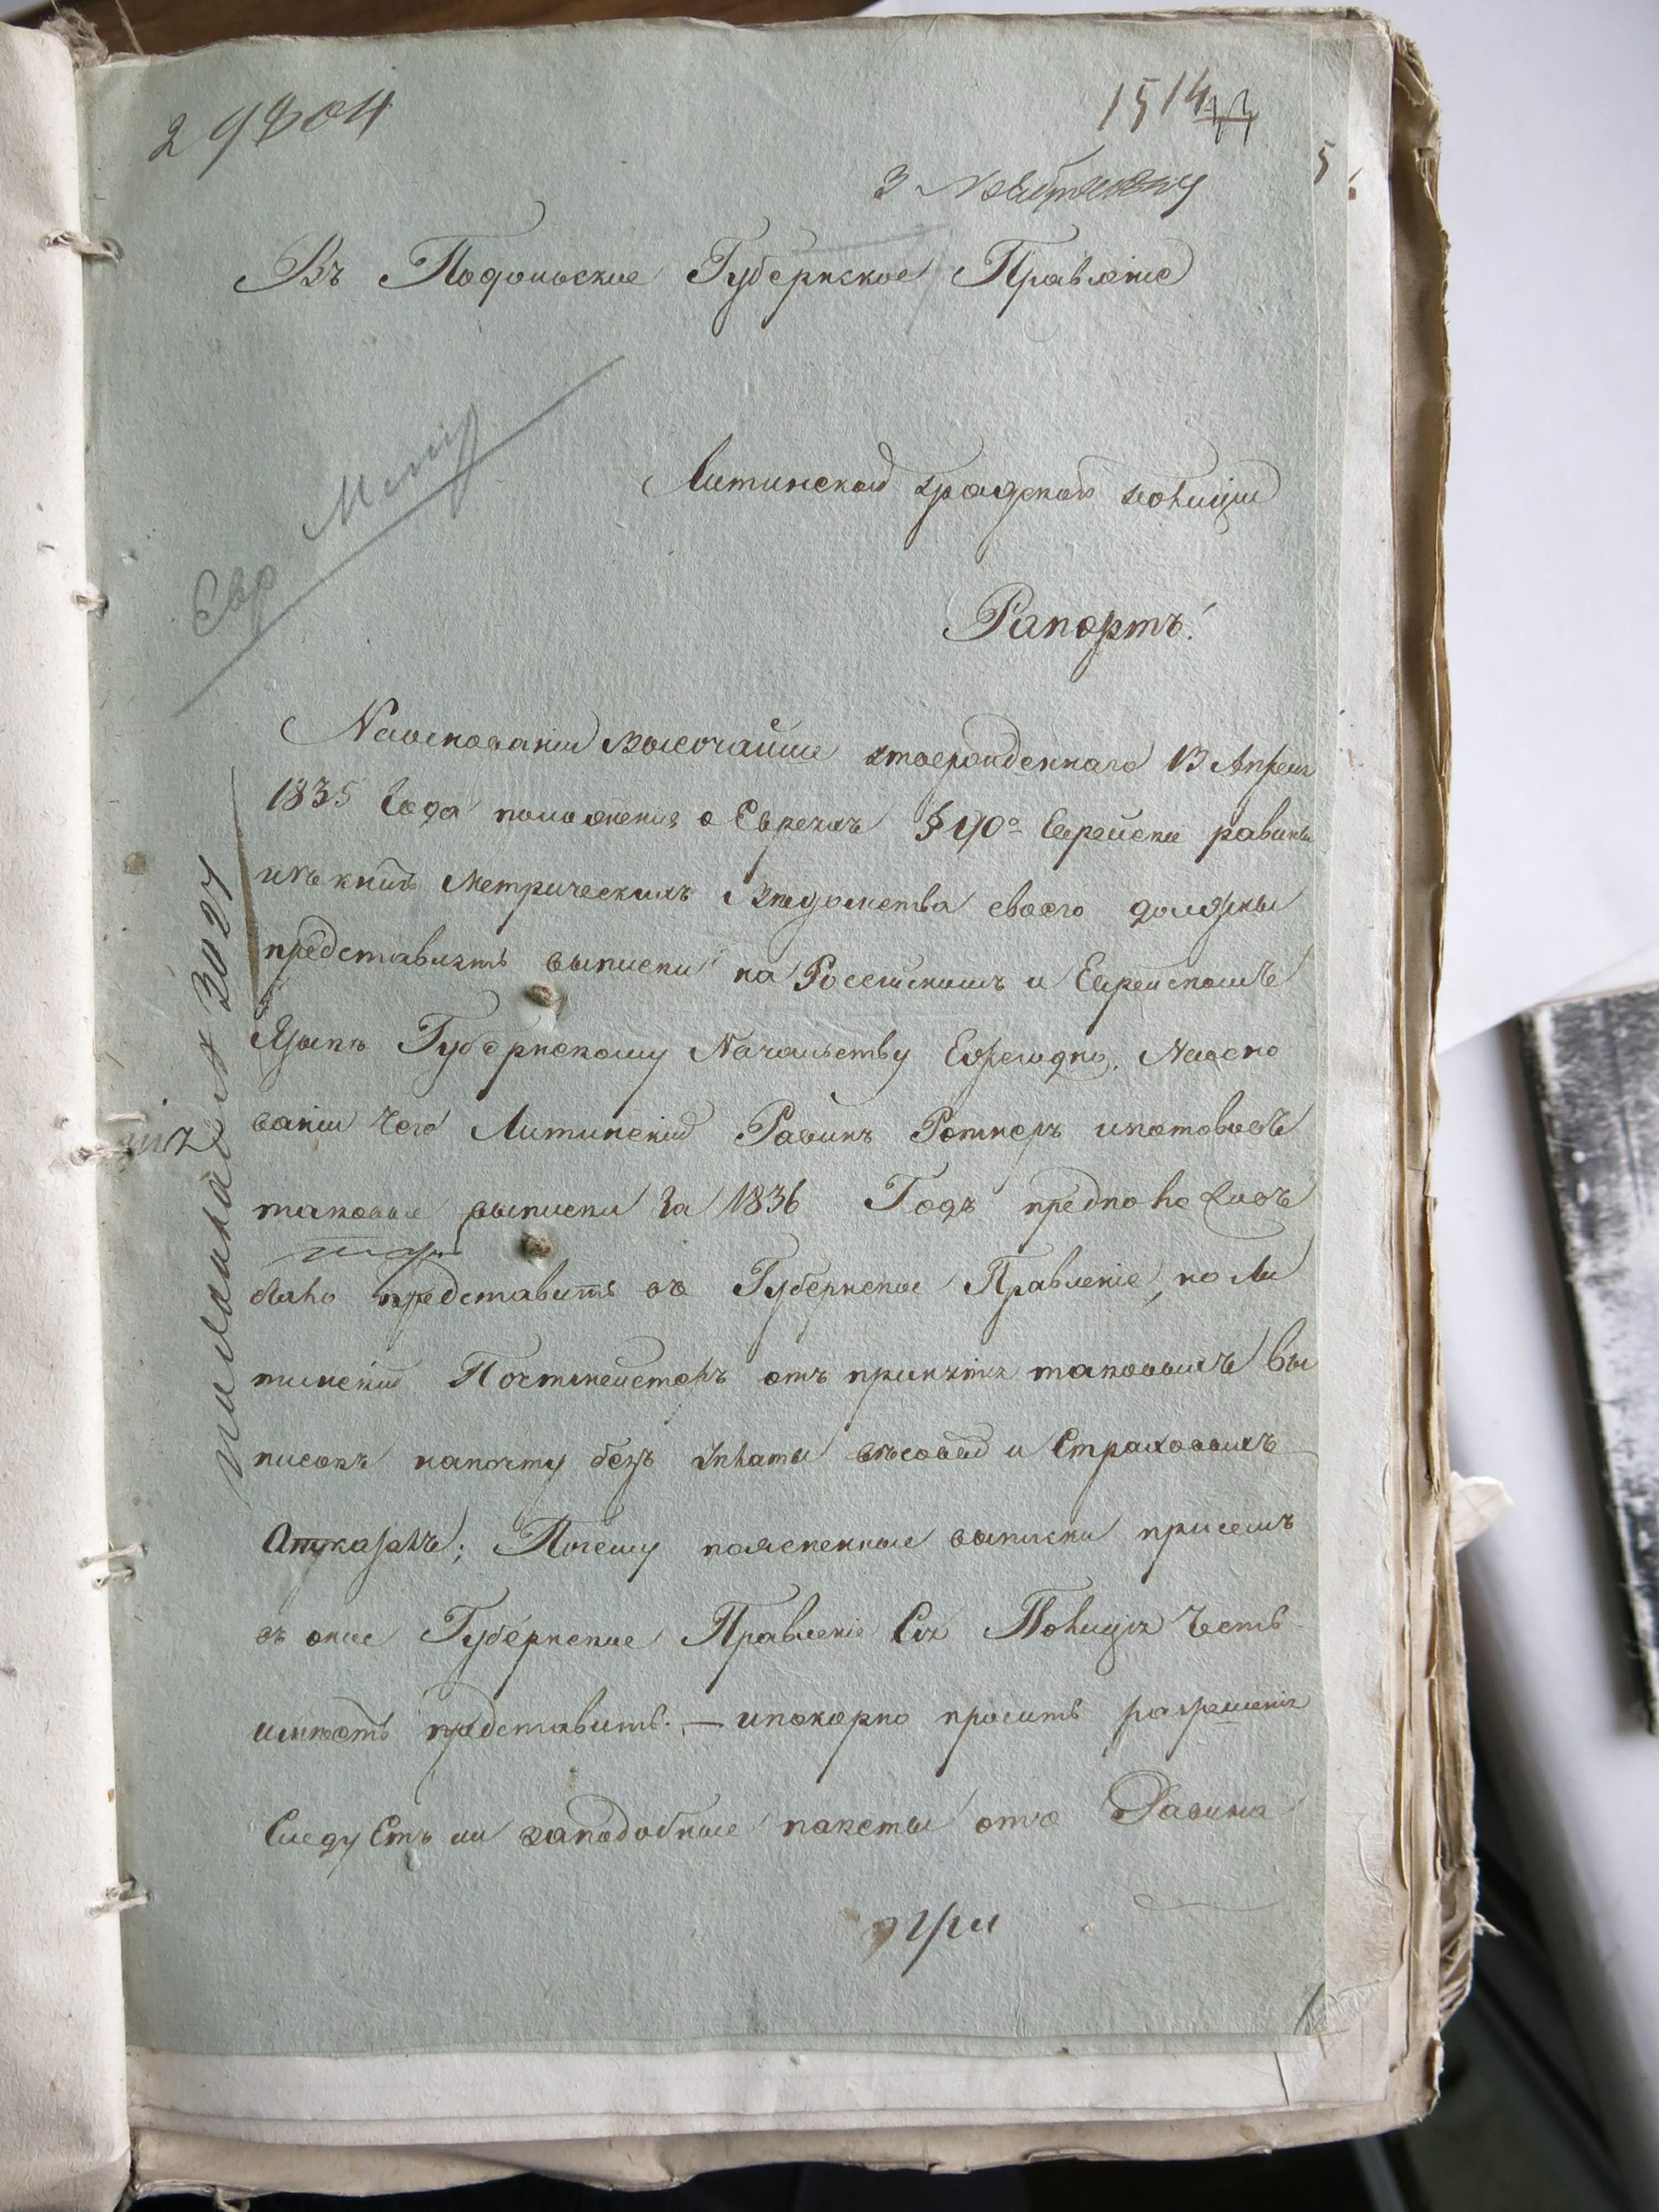 29804
1514
5
Въ Подольское Губернское Правленіе
Литинской градской полиции
Рапортъ!
Евр Метр
Наоснованіи Высочайше утвержденнаго 13 Апреля
1835 Года положенія о Евреяхъ § 90º Еврейскіе равины
изъ книгъ Метрическихъ Вѣдомства своего должны
представлять выписки на Россійскомъ и Еврейскомъ
Языкѣ Губернскому Начальству Ежегодно, Наосно
ваніи Чего Литинскій Равинъ Ротнеръ изготовивъ
таковые выписки За 1836 Годъ предположивъ
было представить въ Губернское Правленіе, но Ли
тинскій Почтмейстеръ отъ принятія таковыхъ Вы
писокъ напочту безъ уплаты вѣсовыхъ и Страховыхъ
Отказалъ; Почему поясненные выписки присемъ
въ оное Губернское Правленіе Сія Полиція Честь
имѣетъ представить. — ипокорно проситъ разрешенія
Следуетъ ли заподобные пакеты отъ Равина
при
3027